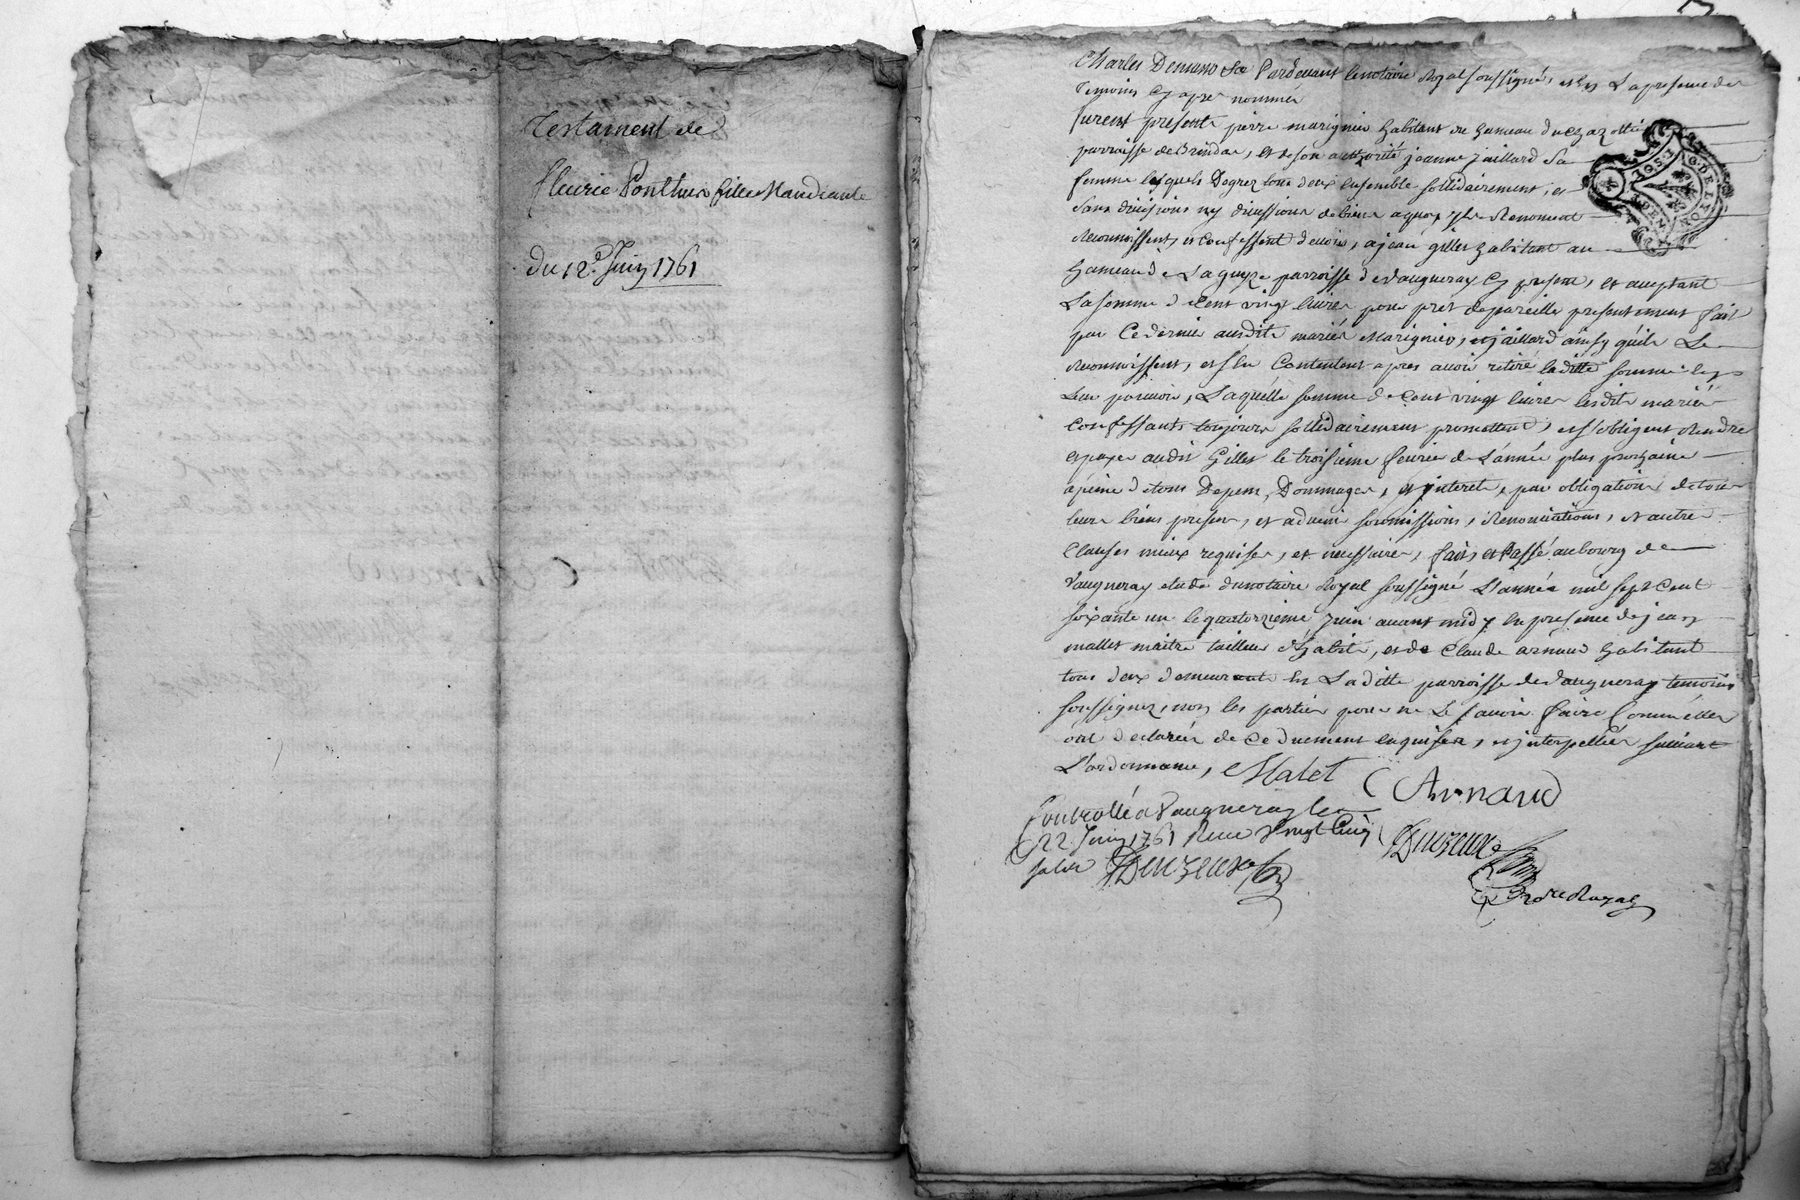 Testament de
fleurie Ponthus fille Mandiante
du 12e. Juin 1761
Pardevant le notaire Royal soussigné, et en La presence des
Temoins Cy apres nommés
furent presents pierre marignier habitant du hameau du
parroisse de Brindas, et de son authorité jeanne jaillard Sa
femme lesquels De grez tous deux ensemble sollidairement, et
Sans divisions ny discussions de biens a quoy ils Renoncent
Reconnoissent, et confessent devoir, a jean gilles habitant au
hameau de La guyze parroisse de Vaugneray Cy present, et aceptant
La somme de Cent vingt livres pour pret de pareille presentement fait
par Ce dernier ausdits mariés Marignier, et jaillard ainsy quils Le
Reconnoissent, et s'en Contentent apres avoir retiré laditte somme en
Leur pouvoir, Laquelle somme de Cent vingt livres lesdits mariés
Confessants toujours sollidairement promettent, et s'obligent Rendre
et payer audit Gilles le troisieme fevrier de L'année plus prochaine
a peine de tous Depens, Dommages, et interets, par obligations de tous
leurs biens presens, et advenir soumissions, Renonciations, et autres
Clauses mieux requises, et necessaires, fait, et Passé au bourg de
Vaugneray etude du notaire Royal soussigné L'année mil sept Cent
soixante un le quatorzieme Juin avant midy en presence de jean
mallet maitre tailleur d'habits, et de Claude arnaud habitant
tous deux demeurants en Laditte parroisse de Vaugneray temoins
soussignez, non les parties pour ne Le savoir faire Comme elles
ont declarés de Ce duement enquises, et interpellées suivant
L'ordonnance, Malet C Arnaud
Controllé a Vaugneray le
22 Juin 1761 Recu Vingt Cinq
sols
No.re Royal